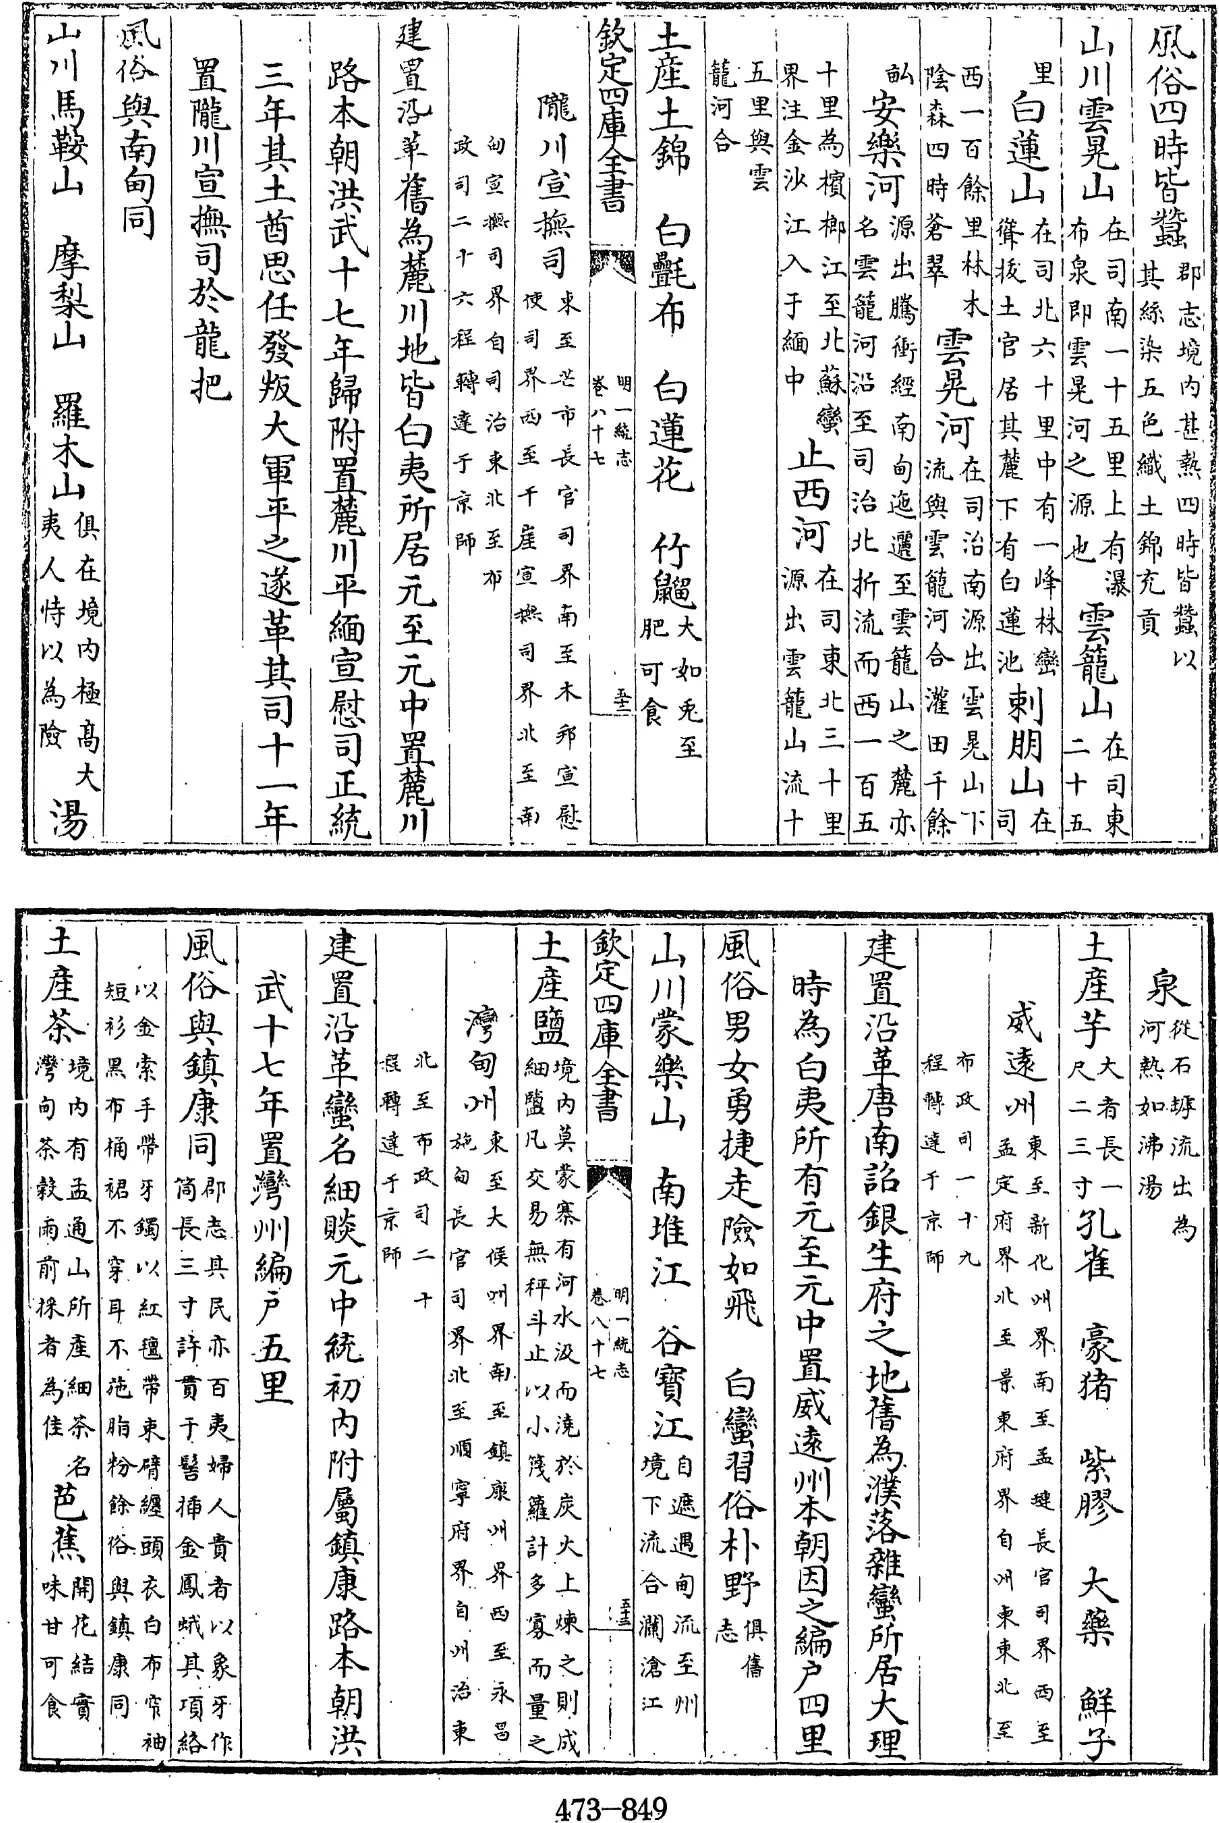 風俗四時皆蠶郡志境内甚熱四時皆蠶以其絲染五色織土錦充貢
山川雲晃山在司南一十五里上有瀑布泉即雲晃河之源也 雲籠山在司東二十五
里 白蓮山在司北六十里中有一峰林巒聳拔土官居其麓下有白蓮池 刺朋山在司
西一百餘里林木陰森四時蒼翠 雲晃河在司治南源出雲晃山下流與雲籠河合灌田千餘
畝 安樂河源出騰衝經南甸迤邐至雲籠山之麓亦名雲籠河沿至司治北折流而西一百五
十里為檳榔江至北蘇蠻界注金沙江入于緬中 止西河在司東北三十里源出雲籠山流十
五里與雲籠河合
土產土錦 白㲲布 白蓮花 竹䶉大如兎至肥可食
欽定四庫全書 明一統志 卷八十七 五十二
隴川宣撫司東至芒市長官司界南至木邦宣慰使司界西至干崖宣撫司界北至南
甸宣撫司界自司治東北至布政司二十六程轉達于京師
建置沿革舊為麓川地皆白夷所居元至元中置麓川
路本朝洪武十七年歸附置麓川平緬宣慰司正統
三年其土酋思任發叛大軍平之遂革其司十一年
置隴川宣撫司於隴把
風俗與南甸同
山川馬鞍山 摩梨山 羅木山俱在境内極高大夷人恃以為險 湯
泉從石罅流出為河熱如沸湯
土產芋大者長一尺二三寸 孔雀 豪猪 紫膠 大藥 鮮子
威遠州東至新化州界南至孟璉長官司界西至孟定府界北至景東府界自州東東北至
布政司一十九程轉達于京師
建置沿革唐南詔銀生府之地舊為濮落雜蠻所居大理
時為白夷所有元至元中置威遠州本朝因之編户四里
風俗男女勇捷走險如飛 白蠻習俗朴野俱舊志
山川蒙樂山 南堆江 谷寶江自遮遇甸流至州境下流合瀾滄江
欽定四庫全書 明一統志 卷八十七 五十三
土產鹽境内莫蒙寨有河水汲而澆於炭火上煉之則成細鹽凡交易無秤斗止以小篾籮計多寡而量之
灣甸州東至大候州界南至鎮康州界西至永昌施甸長官司界北至順寧府界自州治東
北至布政司二十程轉達于京師
建置沿革蠻名細賧元中統初内附屬鎮康路本朝洪
武十七年置灣州編户五里
風俗與鎮康同郡志其民亦百夷婦人貴者以象牙作筒長三寸許貫于髻揷金鳳蛾其項絡
以金索手帶牙鐲以紅氊帶束臂纏頭衣白布窄袖短衫黑布桶裙不穿耳不施脂粉餘俗與鎮康同
土產茶境内有孟通山所產細茶名灣甸茶穀雨前採者為佳 芭蕉開花結實味甘可食
473-849